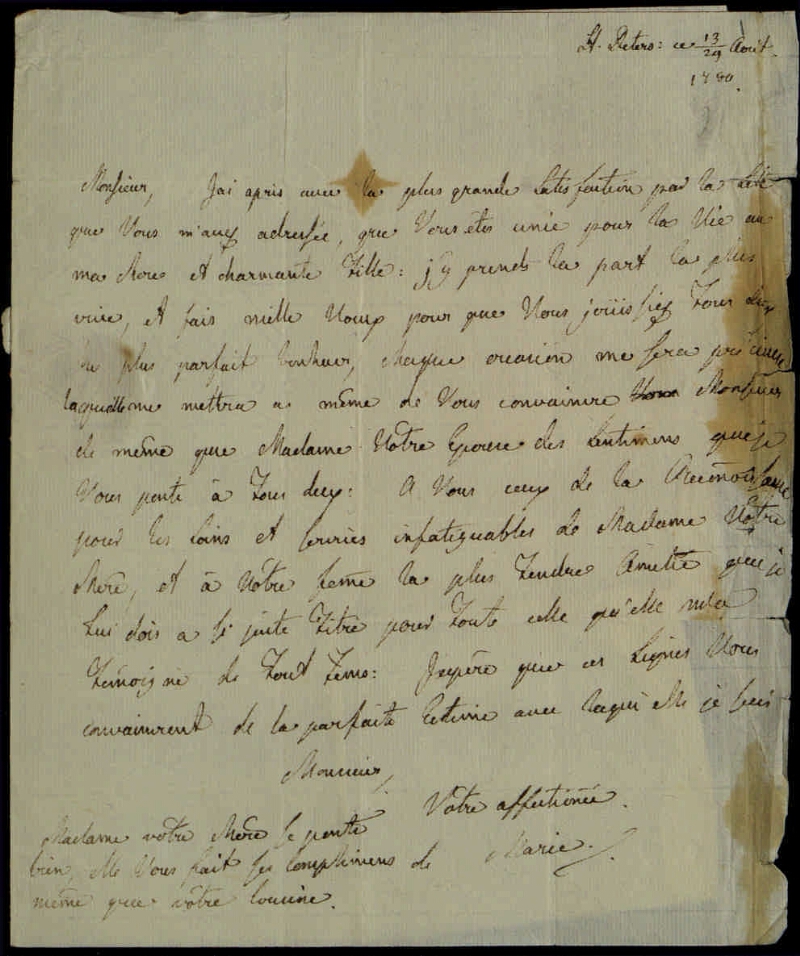 St. Peters: ce 13/24 Août.
1780.
Monsieur, J'ai apris avec la plus grande satisfaction par la
que Vous m'avez adressée, que Vous etes unie pour la Vie au
ma chere et charmante Tille: j'y prends la part la plus
vive, et fais mille Voeux pour que Vous jouissiez Tous deux
du plus parfait bonheur, chaque occasion me sera précieuse
laquelle me mettra a même de Vous convaincre Monsieur
de même que Madame Votre Epouse des sentimens que je
Vous porte à Tous deux: à Vous ceux de la Reconnoissance
pour les soins et services infatiguables de Madame Votre
Mere, et à Votre feme la plus Tendre Amitié que je
lui dois a si juste Titre pour Toute celle qu'elle m'a
Témoigné de Tout Tems: J'espère que ces Lignes Vous
convaincront de la parfaite Estime avec laquelle je suis
Monsieur,
Votre affectionée.
Marie.
Madame votre Mere se porte
bien, elle Vous fait ses Complimens de
même que vôtre Cousine.